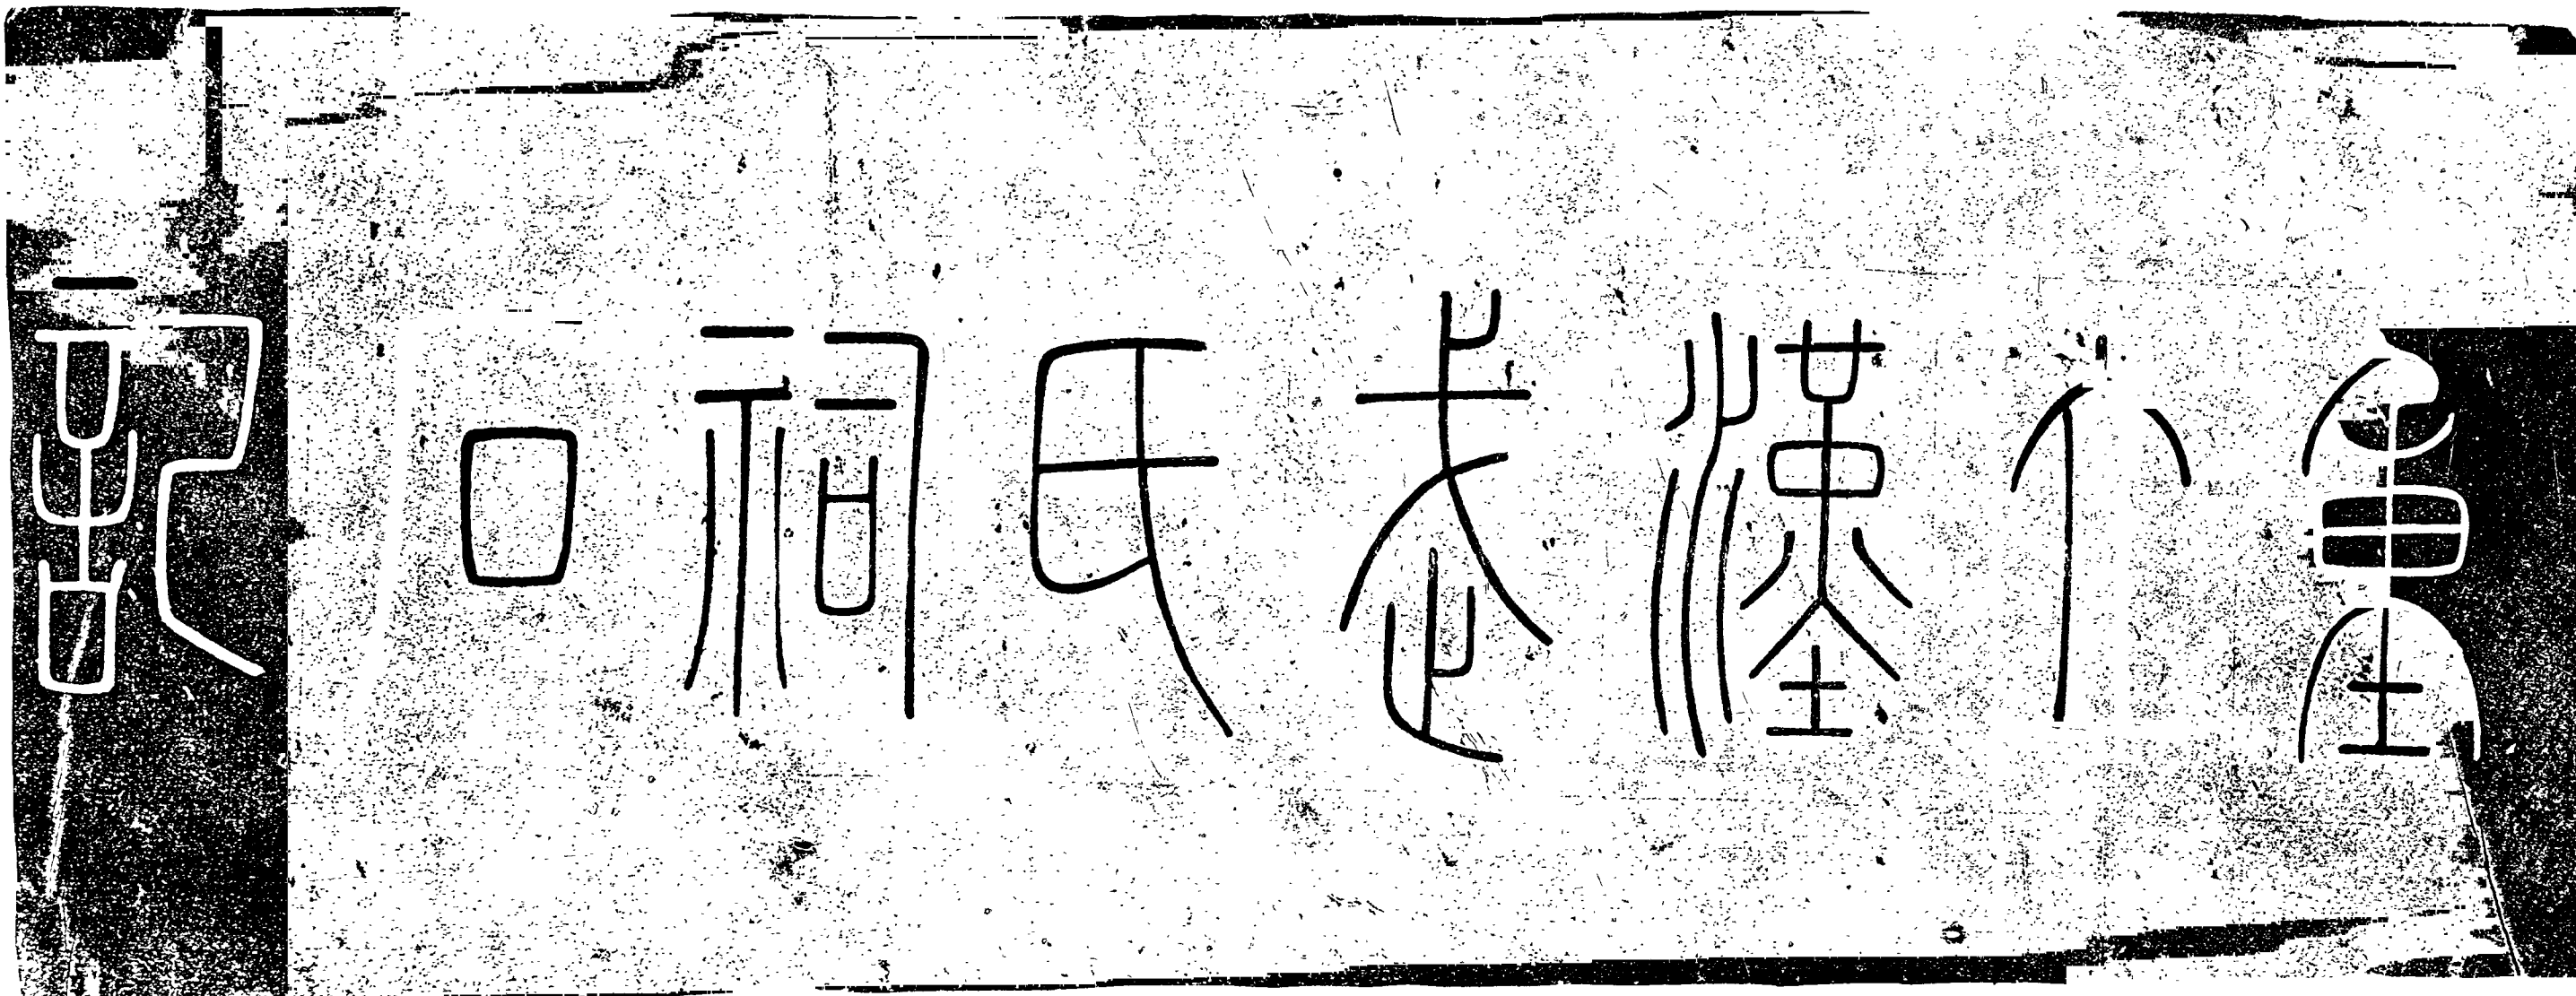 重立漢武氏祠石記